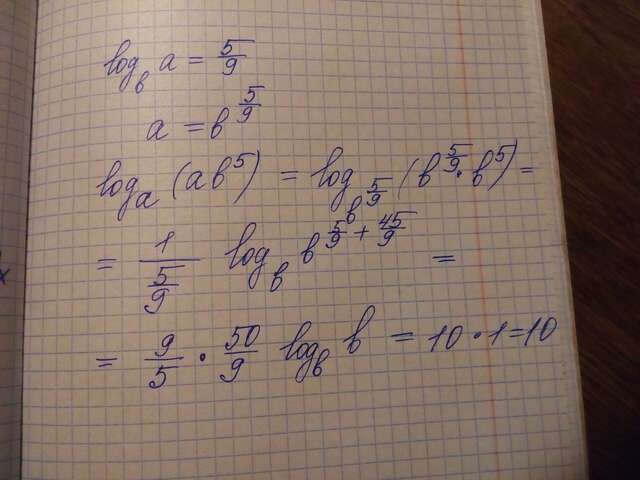 log_в a = 5/9
a = в^(5/9)
log_a (aв^5) = log_(в^(5/9)) (в^(5/9) · в^5) =
= 1/(5/9) log_в в^(5/9 + 45/9) =
= 9/5 · 50/9 log_в в = 10 · 1 = 10